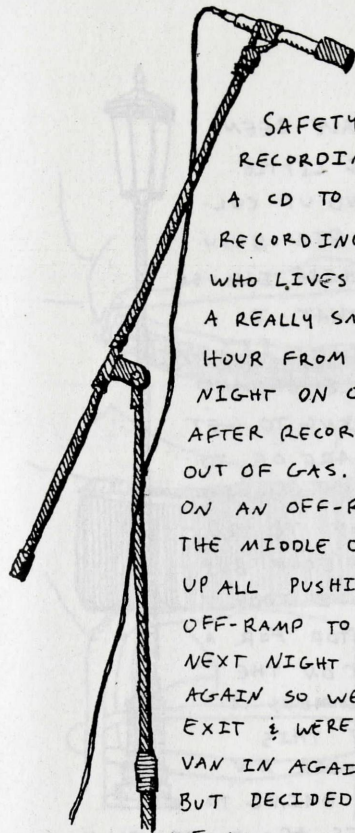 SAFETY
RECORDIN
A CD TO
RECORDING
WHO LIVES
A REALLY SM
HOUR FROM
NIGHT ON C
AFTER RECOR
OUT OF GAS.
ON AN OFF-R
THE MIDDLE O
UP ALL PUSHI
OFF-RAMP TO
NEXT NIGHT
AGAIN SO WE
EXIT & WERE
VAN IN AGAI
BUT DECIDED